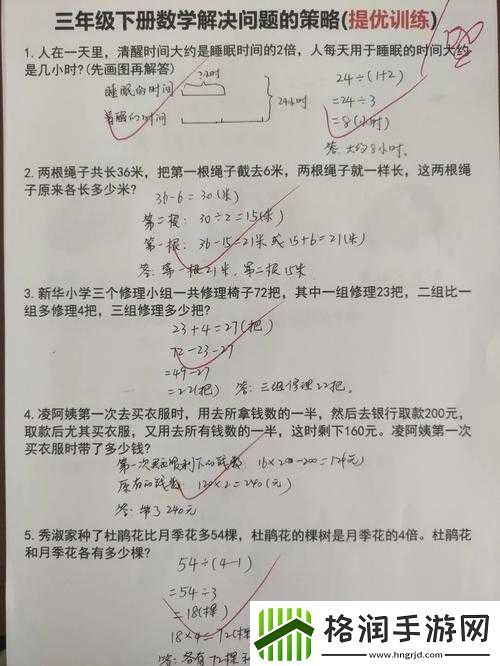 三年级下册数学解决问题的策略(提优训练)
1. 人在一天里，清醒时间大约是睡眠时间的2倍，人每天用于睡眠的时间大约
是几小时?(先画图再解答)
睡眠的时间
24小时
的时间
24÷(1+2)
=24÷3
=8(小时)
答: 大约8小时。
2. 两根绳子共长36米，把第一根绳子截去6米，两根绳子就一样长，这两根绳
子原来各长多少米?
36-6=30(米)
第二根: 30÷2=15(米)
第一根: 36-15=21米 或 15+6=21(米)
答: 第一根21米, 第二根15米
3. 新华小学三个修理小组一共修理椅子72把，其中一组修理23把，二组比一
组多修理4把，三组修理多少把?
23+4=27(把)
72-23-27
=49-27
=22(把) 答: 三组修理22把。
4. 凌阿姨第一次去买衣服时，用去所拿钱数的一半，然后去银行取款200元，
取款后尤其买衣服，又用去所有钱数的一半，这时剩下160元。凌阿姨第一次
买衣服时带了多少钱?
第一次 剩下的钱数:
原有的钱数: 120×2=240(元)
答: 带了240元
5. 秀淑家种了杜鹃花比月季花多54棵，杜鹃花的棵树是月季花的4倍。杜鹃花
和月季花各有多少棵?
54÷(4-1)
=54÷3
=18(棵)
18×4=72(棵)
答: 各有72棵
格润手游网
www.hngrjd.com